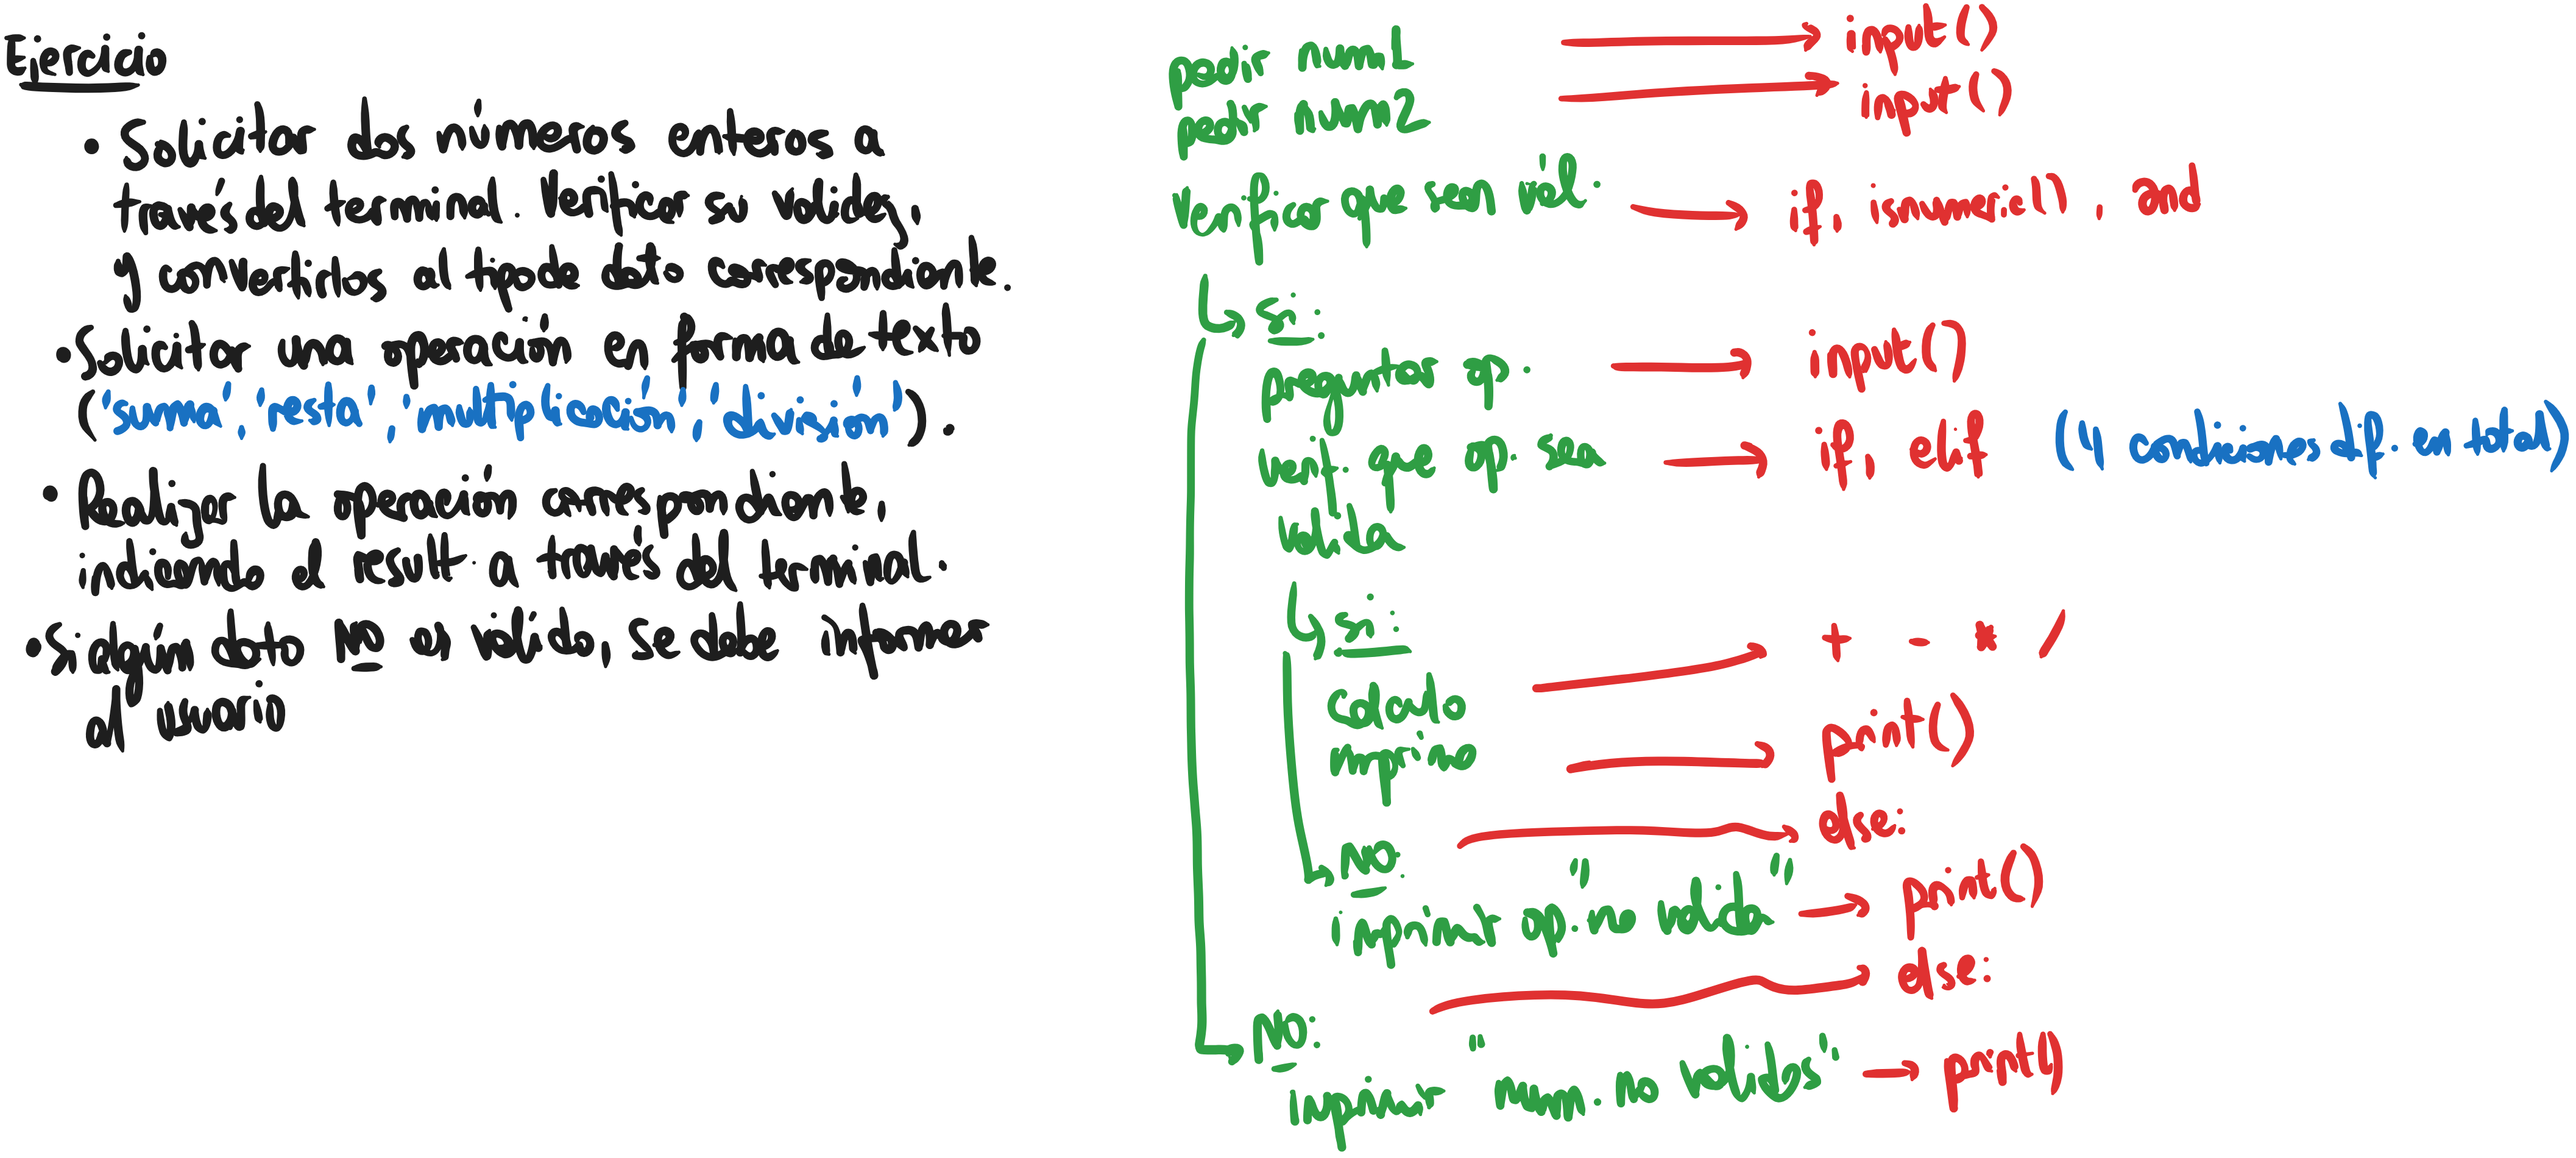 Ejercicio
• Solicitar dos números enteros a
través del terminal. Verificar su validez,
y convertirlos al tipo de dato correspondiente.
• Solicitar una operación en forma de texto
('suma', 'resta', 'multiplicación', 'división').
• Realizar la operación correspondiente,
indicando el result. a través del terminal.
• Si algún dato NO es válido, se debe informar
al usuario
pedir num1 → input()
pedir num2 → input()
Verificar que sean val. → if, isnumeric(), and
si:
preguntar op. → input()
verif. que op. sea → if, elif (4 condiciones dif. en total)
valida
si:
Calculo → + - * /
imprimo → print()
NO: → else:
imprimir "op. no valida" → print()
NO: → else:
imprimir "num. no validos" → print()